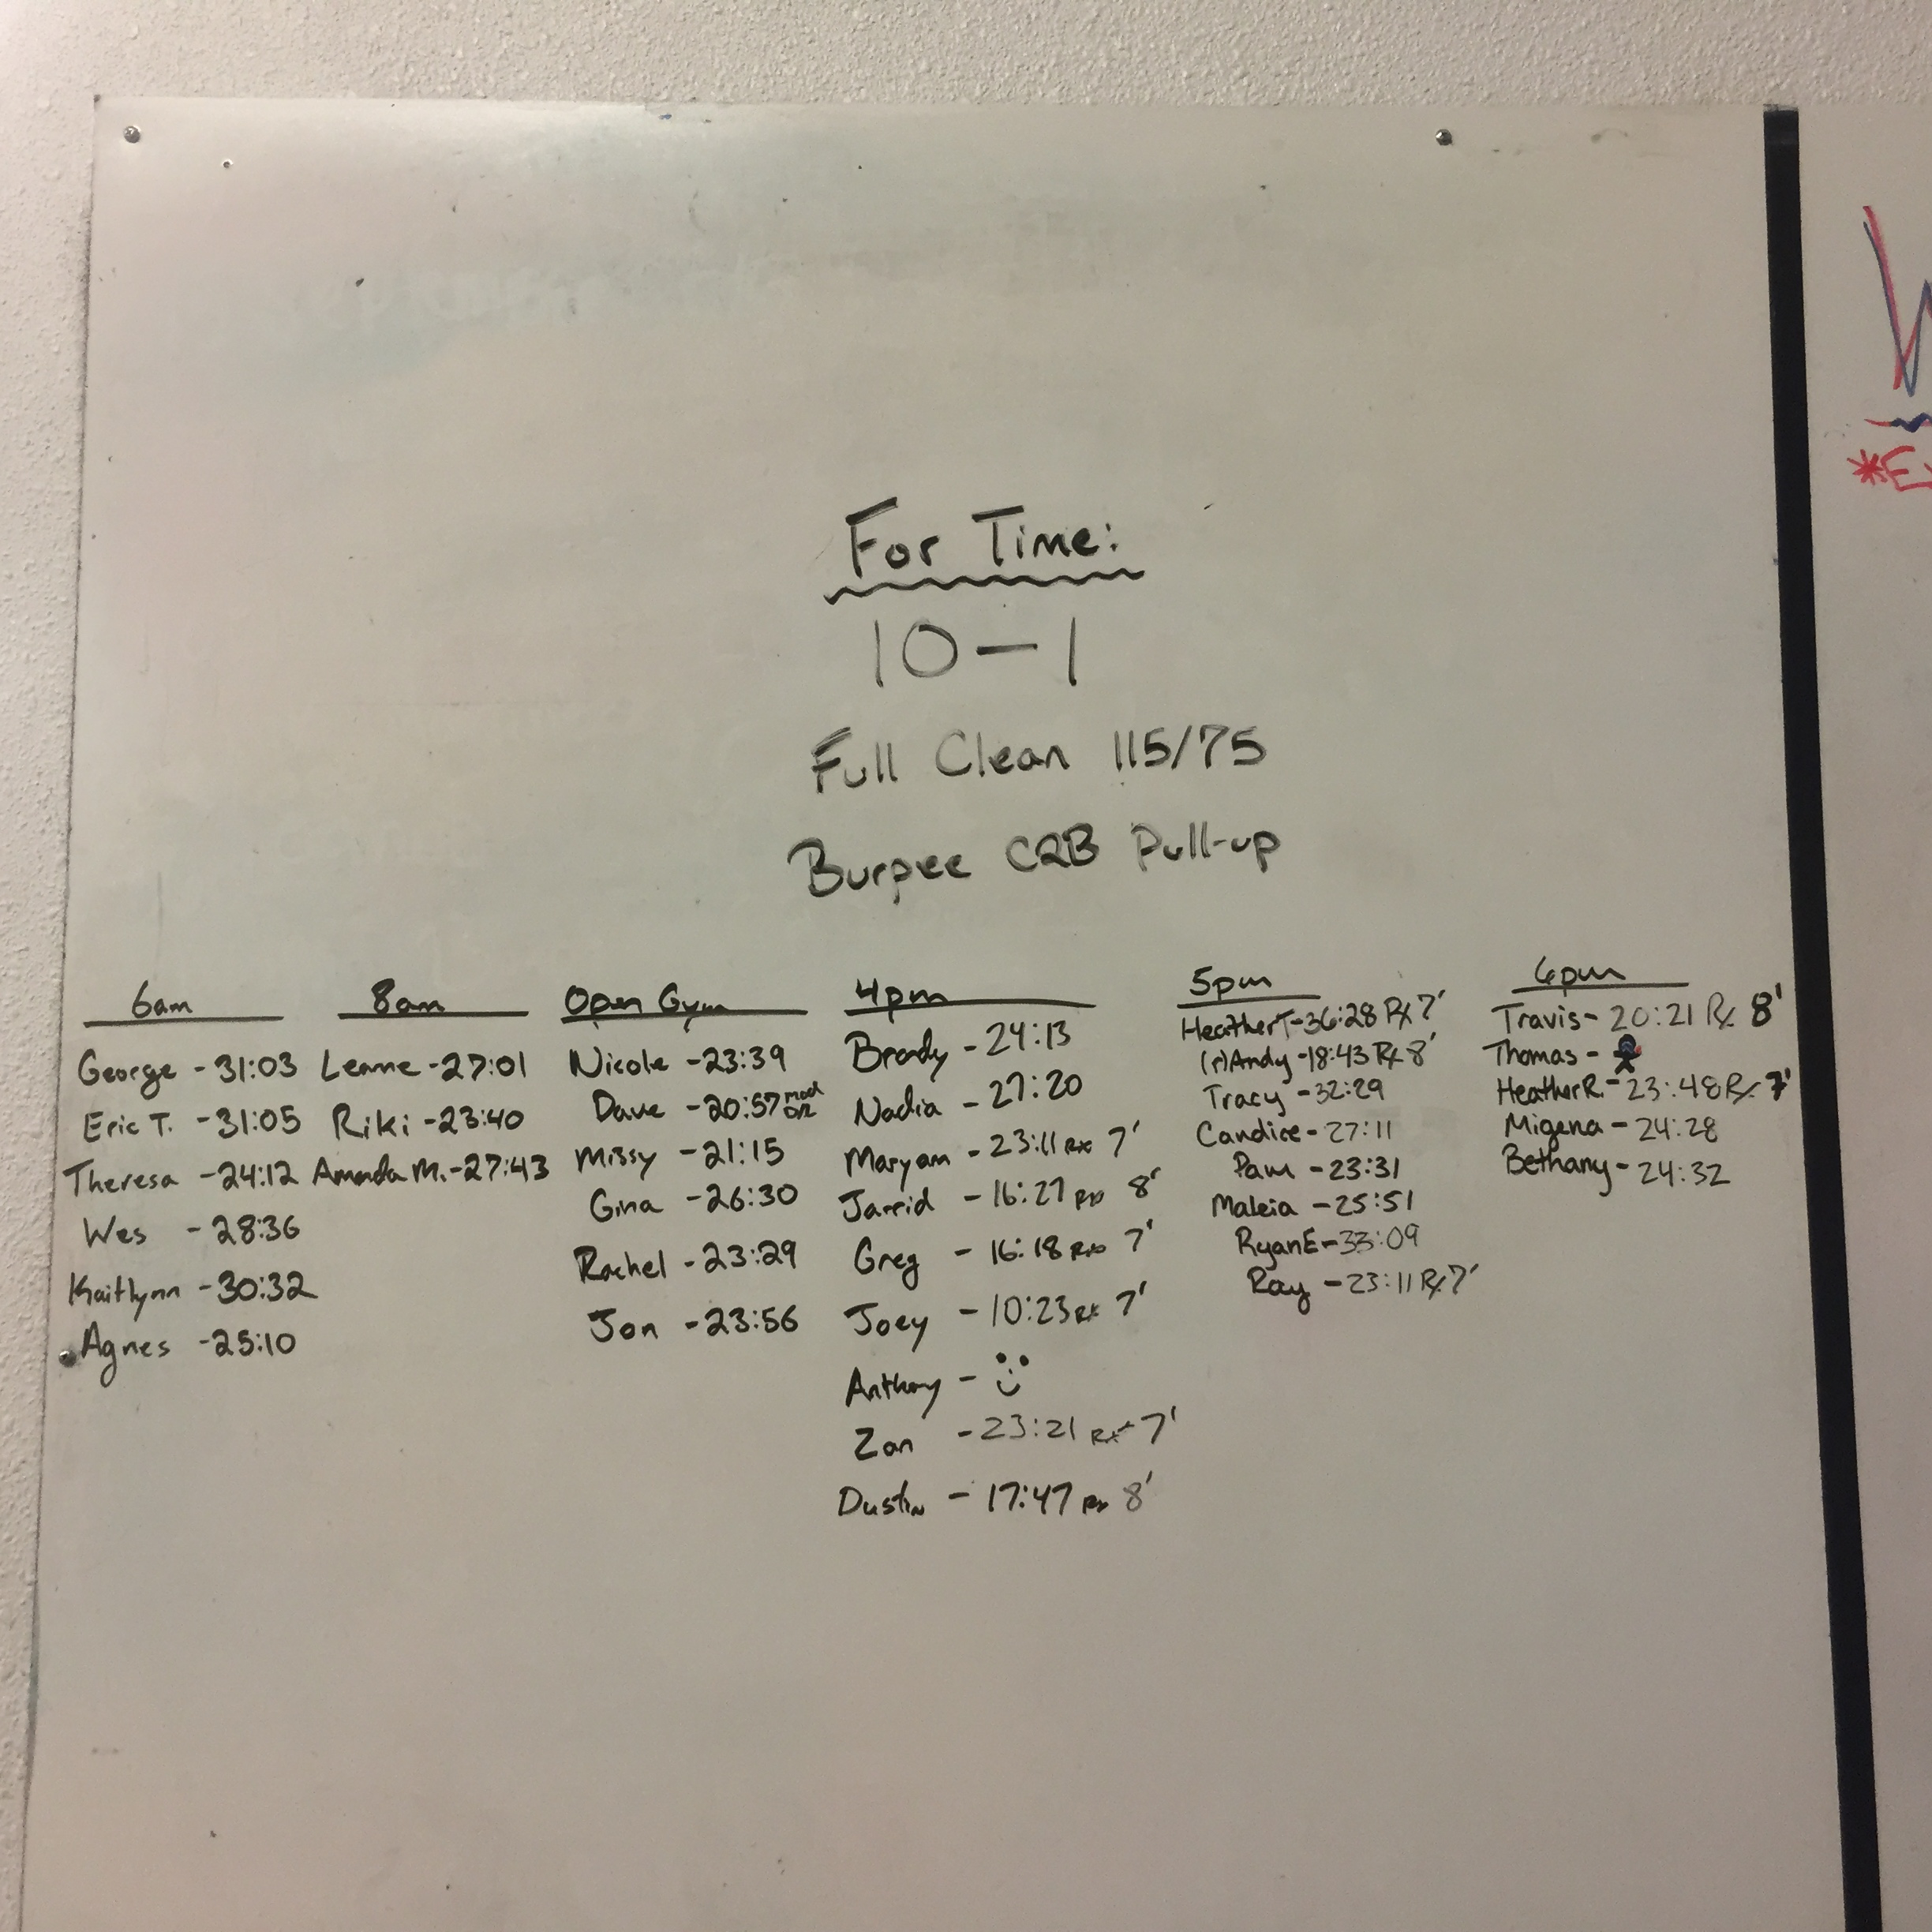 For Time:
10-1
Full Clean 115/75
Burpee C2B Pull-up
6am
George - 31:03
Eric T. - 31:05
Theresa - 24:12
Wes - 28:36
Kaitlynn - 30:32
Agnes - 25:10
8am
Leanne - 27:01
Riki - 23:40
Amanda M. - 27:43
Open Gym
Nicole - 23:39
Dave - 20:57 mod
Missy - 21:15
Gina - 26:30
Rachel - 23:29
Jon - 23:56
4pm
Brady - 24:13
Nadia - 27:20
Maryam - 23:11 Rx 7'
Jarrid - 16:27 Rx 8'
Greg - 16:18 Rx 7'
Joey - 10:23 Rx 7'
Anthony -
Zan - 23:21 Rx 7'
Dustin - 17:47 Rx 8'
5pm
Heather T - 36:28 Rx 7'
(r)Andy - 18:43 Rx 8'
Tracy - 32:29
Candice - 27:11
Pam - 23:31
Maleia - 25:51
RyanE - 33:09
Ray - 23:11 Rx 7'
6pm
Travis - 20:21 Rx 8'
Thomas -
Heather R. - 23:48 Rx 7'
Migena - 24:28
Bethany - 24:32